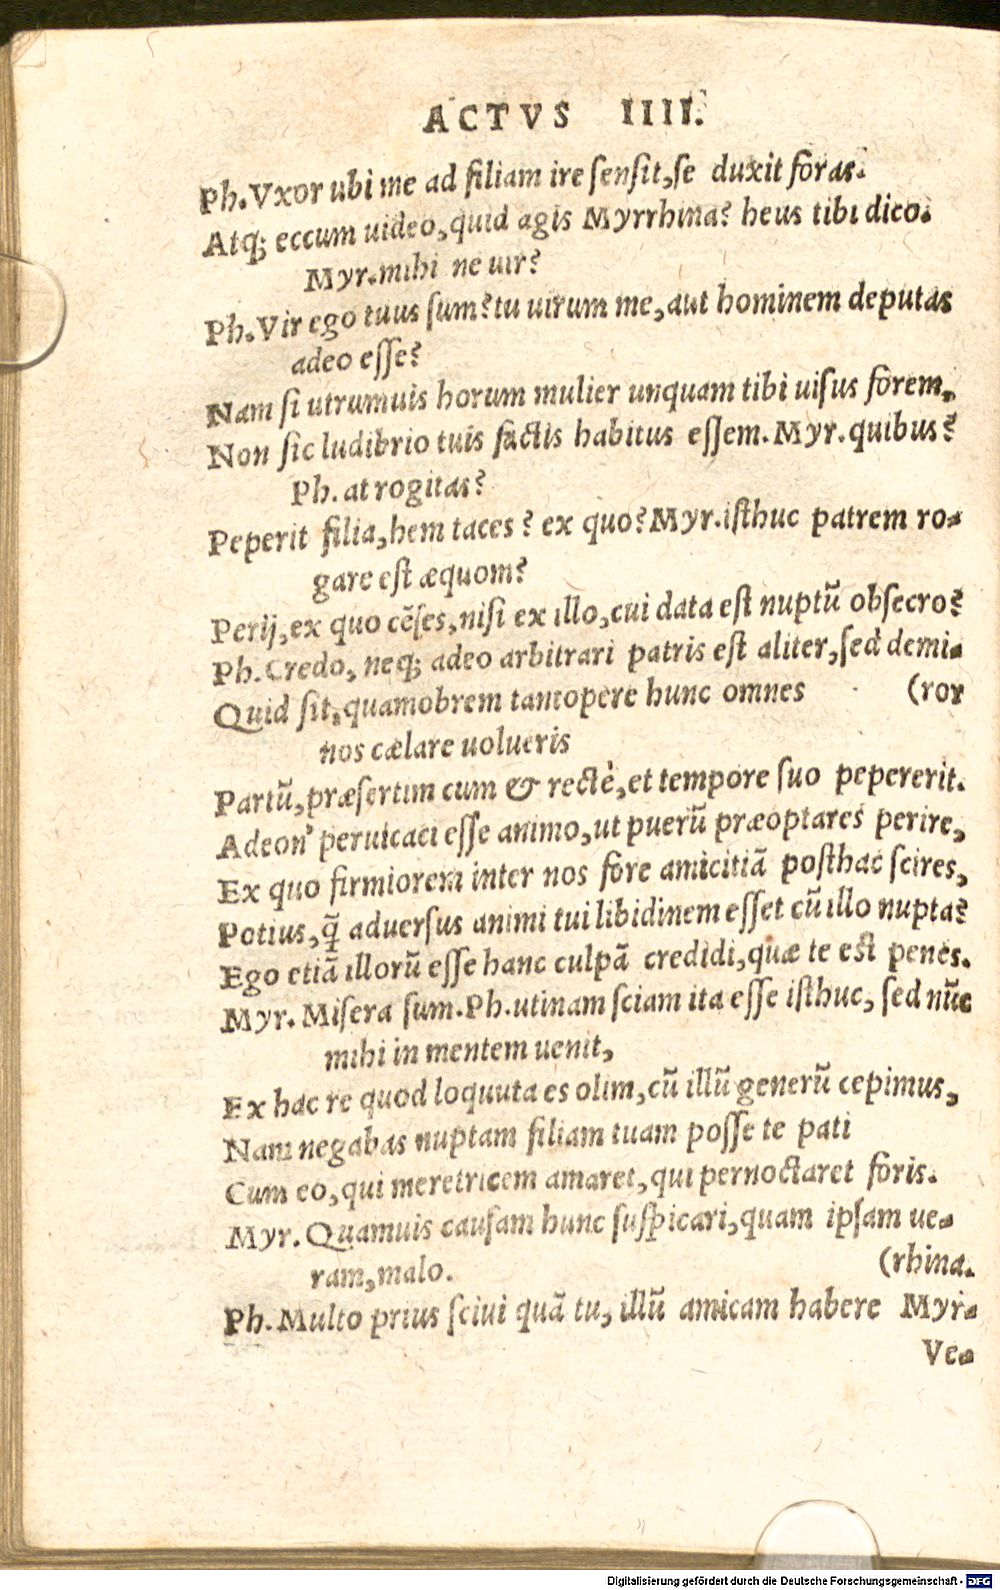 ACTVS IIII.
Ph. Vxor ubi me ad filiam ire ſenſit, ſe duxit foras.
Atq; eccum uideo, quid agis Myrrhina? heus tibi dico.
Myr. mihi ne uir?
Ph. Vir ego tuus ſum? tu uirum me, aut hominem deputas
adeo eſſe?
Nam ſi utrumuis horum mulier unquam tibi uiſus forem,
Non ſic ludibrio tuis factis habitus eſſem. Myr. quibus?
Ph. at rogitas?
Peperit filia, hem taces? ex quo? Myr. iſthuc patrem ro-
gare eſt æquom?
Perij, ex quo cēſes, niſi ex illo, cui data eſt nuptū obſecro?
Ph. Credo, neq; adeo arbitrari patris eſt aliter, ſed demi-
Quid ſit, quamobrem tantopere hunc omnes (ror
nos cælare uolueris
Partū, præſertim cum & rectè, et tempore ſuo pepererit.
Adeon' peruicaci eſſe animo, ut puerū præoptares perire,
Ex quo firmiorem inter nos fore amicitiā poſthac ſcires,
Potius, q̃ aduerſus animi tui libidinem eſſet cū illo nupta?
Ego etiā illorū eſſe hanc culpā credidi, quæ te eſt penes.
Myr. Miſera ſum. Ph. utinam ſciam ita eſſe iſthuc, ſed nūc
mihi in mentem uenit,
Ex hac re quod loquuta es olim, cū illū generū cepimus,
Nam negabas nuptam filiam tuam poſſe te pati
Cum eo, qui meretricem amaret, qui pernoctaret foris.
Myr. Quamuis cauſam hunc ſuſpicari, quam ipſam ue-
ram, malo. (rhina.
Ph. Multo prius ſciui quā tu, illū amicam habere Myr-
Ve-
Digitalisierung gefördert durch die Deutsche Forschungsgemeinschaft - DFG